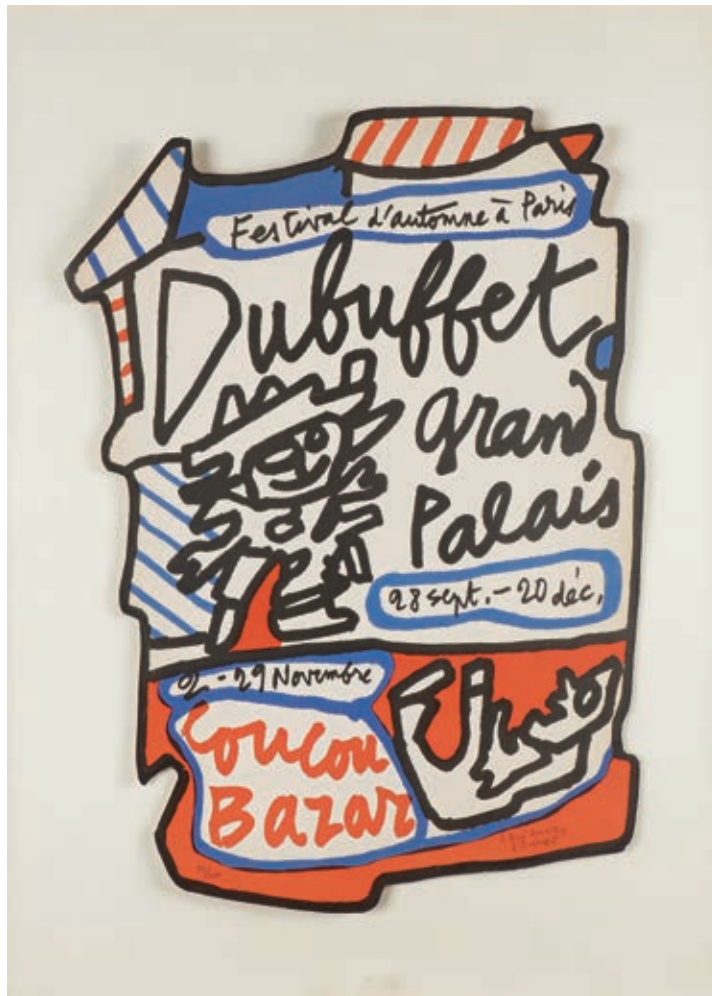 Festival d'automne à Paris
Dubuffet
Grand
Palais
28 sept. – 20 déc.
2 - 29 Novembre
Coucou
Bazar